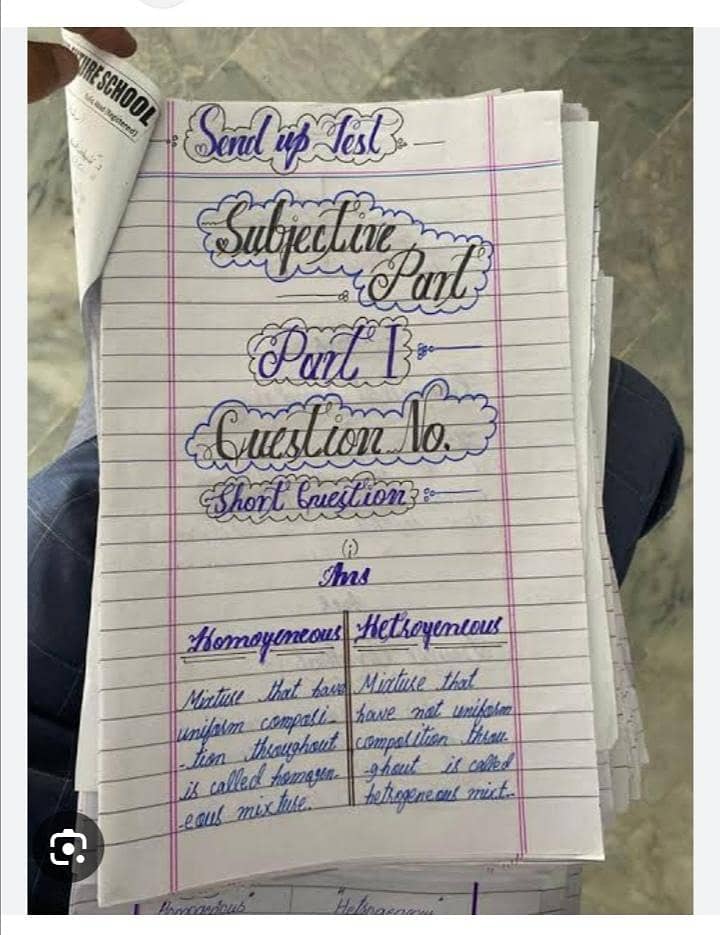 SCHOOL
Send up Test
Subjective
Part
Part I
Question No.
Short Question
(i)
Ans
Homogeneous Hetrogeneous
Mixture that have Mixture that
uniform composi- have not uniform
-tion throughout composition throu-
is called homogen- -ghout is called
-eous mixture. hetrogeneous mixt-